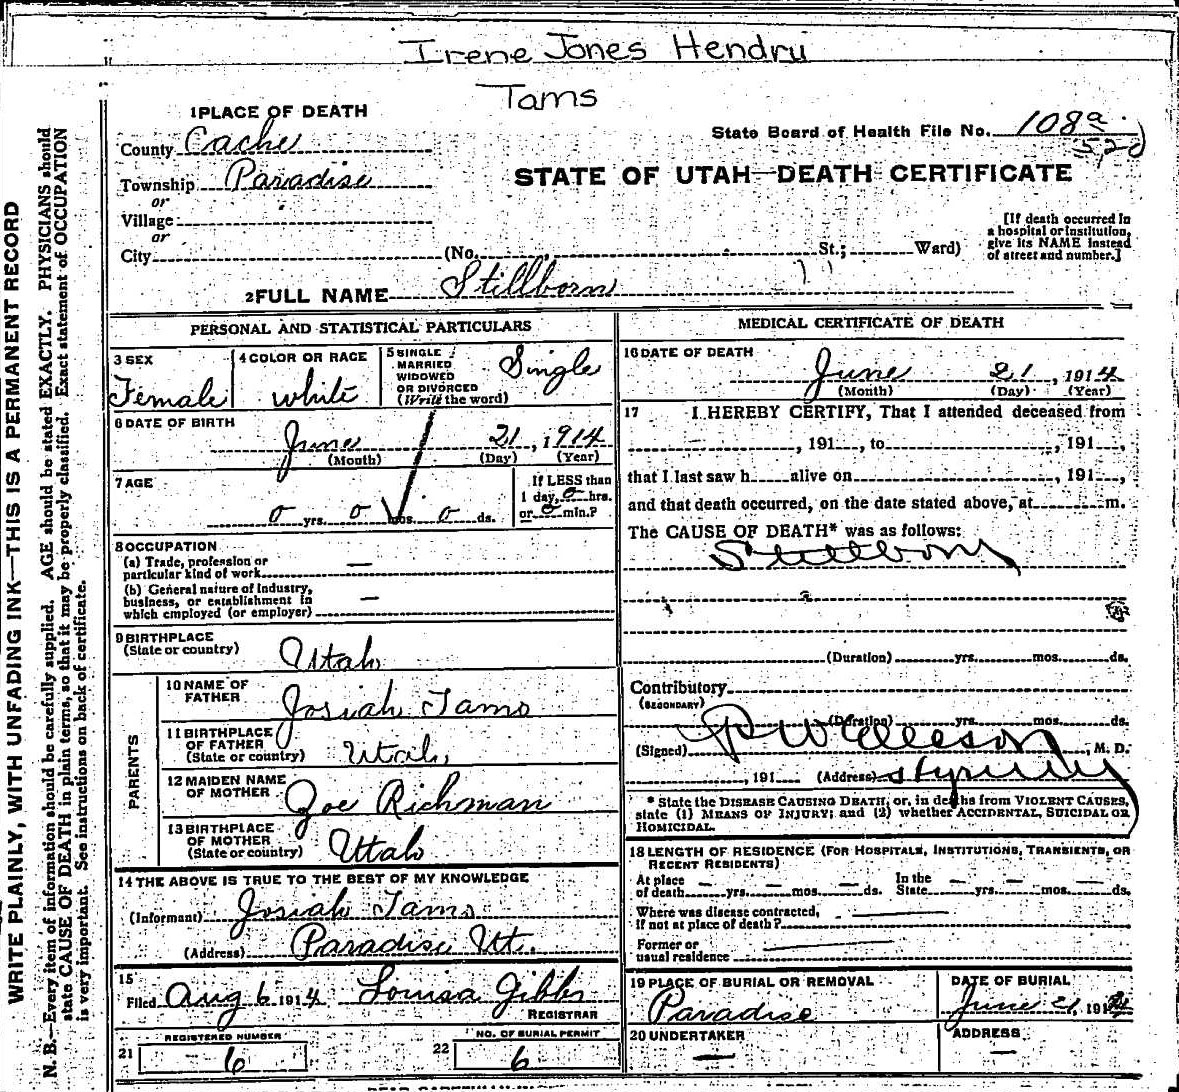 Irene Jones Hendry
Tams
1 PLACE OF DEATH
County Cache
State Board of Health File No. 108a
522
Township Paradise
STATE OF UTAH—DEATH CERTIFICATE
or
Village
or
City (No. St.; Ward)
[If death occurred in a hospital or institution, give its NAME instead of street and number.]
2 FULL NAME Stillborn
PERSONAL AND STATISTICAL PARTICULARS
3 SEX Female
4 COLOR OR RACE white
5 SINGLE MARRIED WIDOWED OR DIVORCED (Write the word) Single
6 DATE OF BIRTH June 21, 1914
(Month) (Day) (Year)
7 AGE
0 yrs. 0 mos. 0 ds.
If LESS than 1 day, 0 hrs. or 0 min.?
8 OCCUPATION
(a) Trade, profession or particular kind of work —
(b) General nature of industry, business, or establishment in which employed (or employer) —
9 BIRTHPLACE
(State or country) Utah
PARENTS
10 NAME OF FATHER Josiah Tams
11 BIRTHPLACE OF FATHER (State or country) Utah
12 MAIDEN NAME OF MOTHER Zoe Richman
13 BIRTHPLACE OF MOTHER (State or country) Utah
14 THE ABOVE IS TRUE TO THE BEST OF MY KNOWLEDGE
(Informant) Josiah Tams
(Address) Paradise Ut.
15
Filed Aug 6 1914 Louisa Gibbs
REGISTRAR
REGISTERED NUMBER
21 6
NO. OF BURIAL PERMIT
22 6
MEDICAL CERTIFICATE OF DEATH
16 DATE OF DEATH
June 21, 1914
(Month) (Day) (Year)
17 I HEREBY CERTIFY, That I attended deceased from
, 191 , to , 191 ,
that I last saw h alive on , 191 ,
and that death occurred, on the date stated above, at m.
The CAUSE OF DEATH* was as follows:
Stillborn
(Duration) yrs. mos. ds.
Contributory
(SECONDARY)
(Duration) yrs. mos. ds.
(Signed) , M. D.
, 191 (Address)
* State the DISEASE CAUSING DEATH, or, in deaths from VIOLENT CAUSES, state (1) MEANS OF INJURY; and (2) whether ACCIDENTAL, SUICIDAL OR HOMICIDAL.
18 LENGTH OF RESIDENCE (FOR HOSPITALS, INSTITUTIONS, TRANSIENTS, OR RECENT RESIDENTS)
At place of death — yrs. — mos. — ds. In the State — yrs. — mos. — ds.
Where was disease contracted, if not at place of death? —
Former or usual residence —
19 PLACE OF BURIAL OR REMOVAL
Paradise
DATE OF BURIAL
June 21, 1914
20 UNDERTAKER
—
ADDRESS
—
WRITE PLAINLY, WITH UNFADING INK—THIS IS A PERMANENT RECORD
N. B.—Every item of information should be carefully supplied. AGE should be stated EXACTLY. PHYSICIANS should
state CAUSE OF DEATH in plain terms, so that it may be properly classified. Exact statement of OCCUPATION
is very important. See instructions on back of certificate.